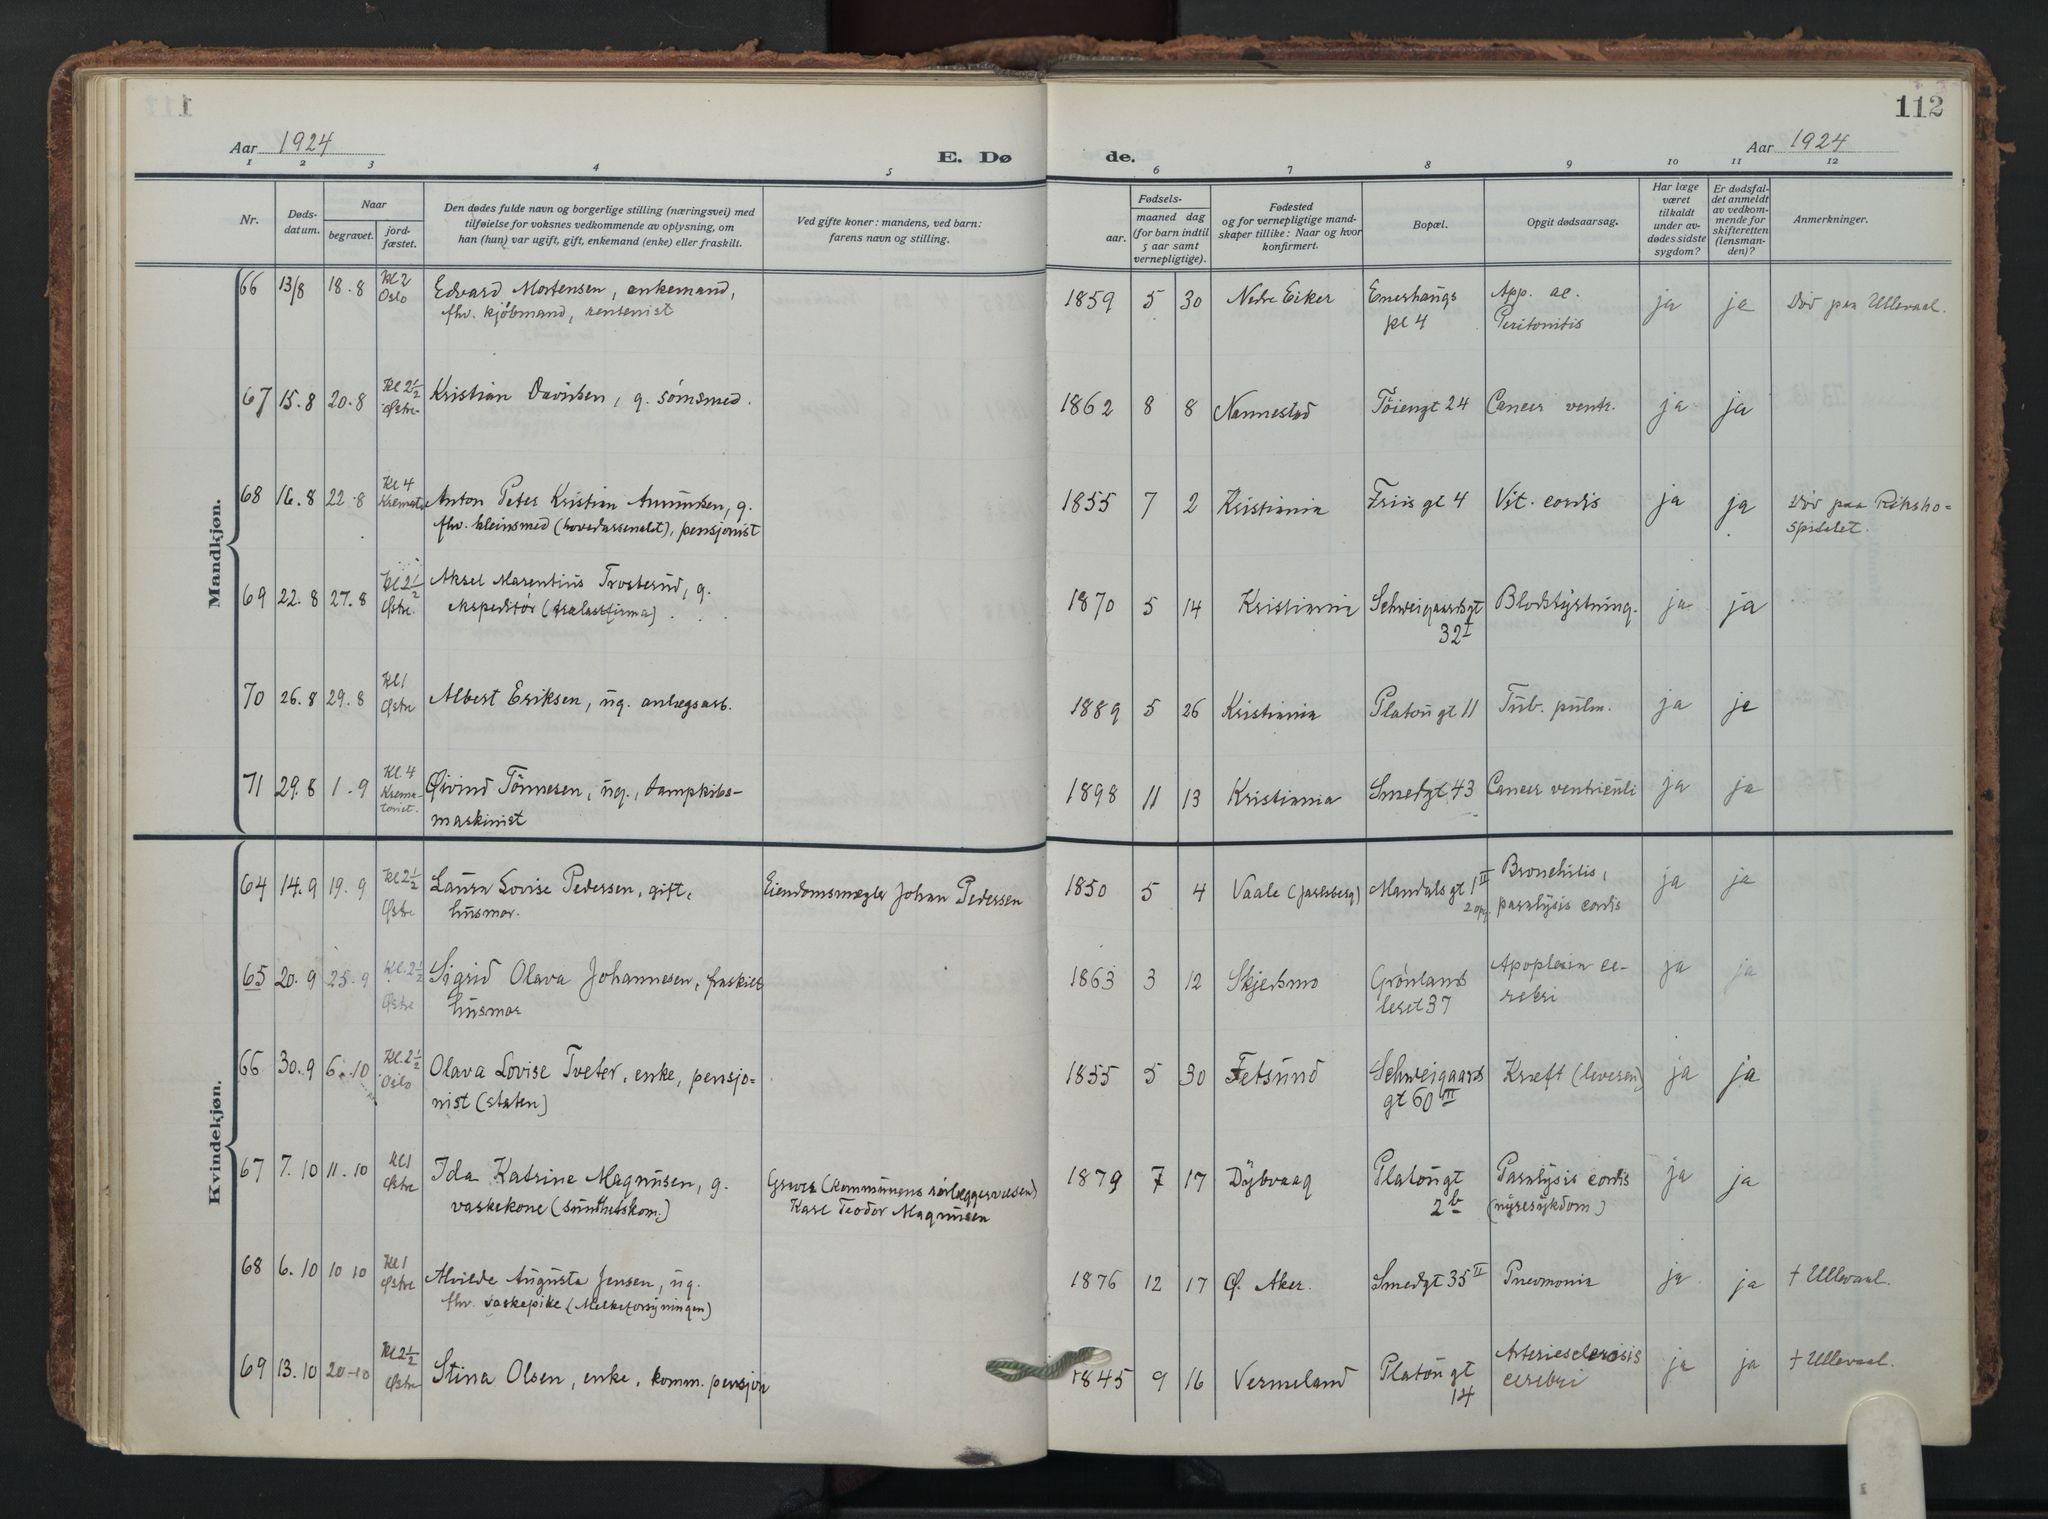 111
112
Aar 1924
E. Dø
de.
Aar 1924
1 2 3 4 5 6 7 8 9 10 11 12
Nr.
Døds-
datum.
Naar
begravet.
jord-
fæstet.
Den dødes fulde navn og borgerlige stilling (næringsvei) med
tilføielse for voksnes vedkommende av oplysning, om
han (hun) var ugift, gift, enkemand (enke) eller fraskilt.
Ved gifte koner: mandens, ved barn:
farens navn og stilling.
Fødsels-
aar.
maaned dag
(for barn indtil
5 aar samt
vernepligtige).
Fødested
og for vernepligtige mand-
skaper tillike: Naar og hvor
konfirmert.
Bopæl.
Opgit dødsaarsag.
Har læge
været
tilkaldt
under av-
dødes sidste
sygdom?
Er dødsfal-
det anmeldt
av vedkom-
mende for
skifteretten
(lensman-
den)?
Anmerkninger.
Mandkjøn.
66 13/8 18.8 Kl 2 Edvard Mortensen, enkemand, 1859 5 30 Nedre Eiker Enerhaugs App. ac. ja ja Død paa Ullevaal.
Oslo fhv. kjøbmand, rentenist pl 4 Peritonitis
67 15.8 20.8 Kl 2½ Kristian Davidsen, g. sömsmed. 1862 8 8 Nannestad Töiengt 24 Cancer ventr. ja ja
Østre
68 16.8 22.8 Kl 4 Anton Peter Kristian Amundsen, g. 1855 7 2 Kristiania Friis gt 4 Vit. cordis ja ja Död paa Riksho-
Kremat. fhv. kleinsmed (hovedarsenalet), pensjonist spitalet.
69 22.8 27.8 Kl 2½ Aksel Marentius Trosterud, g. 1870 5 14 Kristiania Schweigaardsgt Blodstyrtning. ja ja
Østre. ekspeditör (trælastfirma). 32 I
70 26.8 29.8 Kl 1 Albert Eriksen, ug. anlegsarb. 1889 5 26 Kristiania Platougt 11 Tub. pulm. ja ja
Østre
71 29.8 1.9 Kl. 4 Øivind Tönnesen, ug., dampskibs- 1898 11 13 Kristiania Smedgt 43 Cancer ventriculi ja ja
Krema-
toriet. maskinist
Kvindekjøn.
64 14.9 19.9 Kl 2½ Laura Lovise Pedersen, gift, Eiendomsmægler Johan Pedersen 1850 5 4 Vaale (Jarlsberg) Mandals gt 1 II Bronchitis, ja ja
Østre husmor. 2 opg. paralysis cordis
65 20.9 25.9 Kl. 2½ Sigrid Olava Johannesen, fraskilt 1863 3 12 Skjedsmo Grönlands Apoplexia ce- ja ja
Østre husmor leret 37 rebri
66 30.9 6.10 Kl. 2½ Olava Lovise Tveter, enke, pensjo- 1855 5 30 Fetsund Schweigaards Kræft (leveren) ja ja
Oslo nist (staten) gt 60 III
67 7.10 11.10 Kl 1 Ida Katrine Magnusen, g. Graver (kommunens rörlæggervæsen) 1879 7 17 Dybvaag Platougt Paralysis cordis ja ja
Østre vaskekone (sundhetskom.) Karl Teodor Magnusen 2 b (nyresykdom)
68 6.10 10 10 Kl 1 Alvilde Augusta Jensen, ug. 1876 12 17 Ø. Aker. Smedgt 35 II Pneumonia ja ja † Ullevaal.
Østre fhv. vaskepike (Melkeforsyningen)
69 13.10 20-10 Kl 2½ Stina Olsen, enke, komm. pensjon 1845 9 16 Vermeland Platougt Arteriesclerosis ja ja † Ullevaal.
Østre 14 cerebri